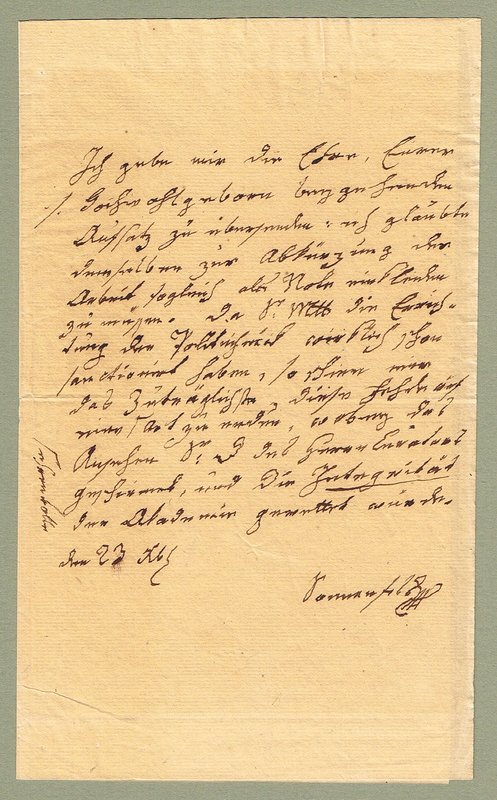 Ich gebe mir die Ehre, Euer
/. Hochwohlgeborn beygehenden
Aufsatz zu übersenden: ich glaubte
denselben zur Abkürzung der
Arbeit sogleich als Note einkleiden
zu müssen. da Sr. Mtt die Errich-
tung der Polittechnick wirklich schon
sanctionirt haben, so schien mir
das Zuträglichste, diese Fehde auf
eine Art zu enden, wobey das
Ansehen Sr. D des Herrn Curators
geschirmet, und die Integrität
der Akademie gerettet würde.
den 23
Sonnenfels